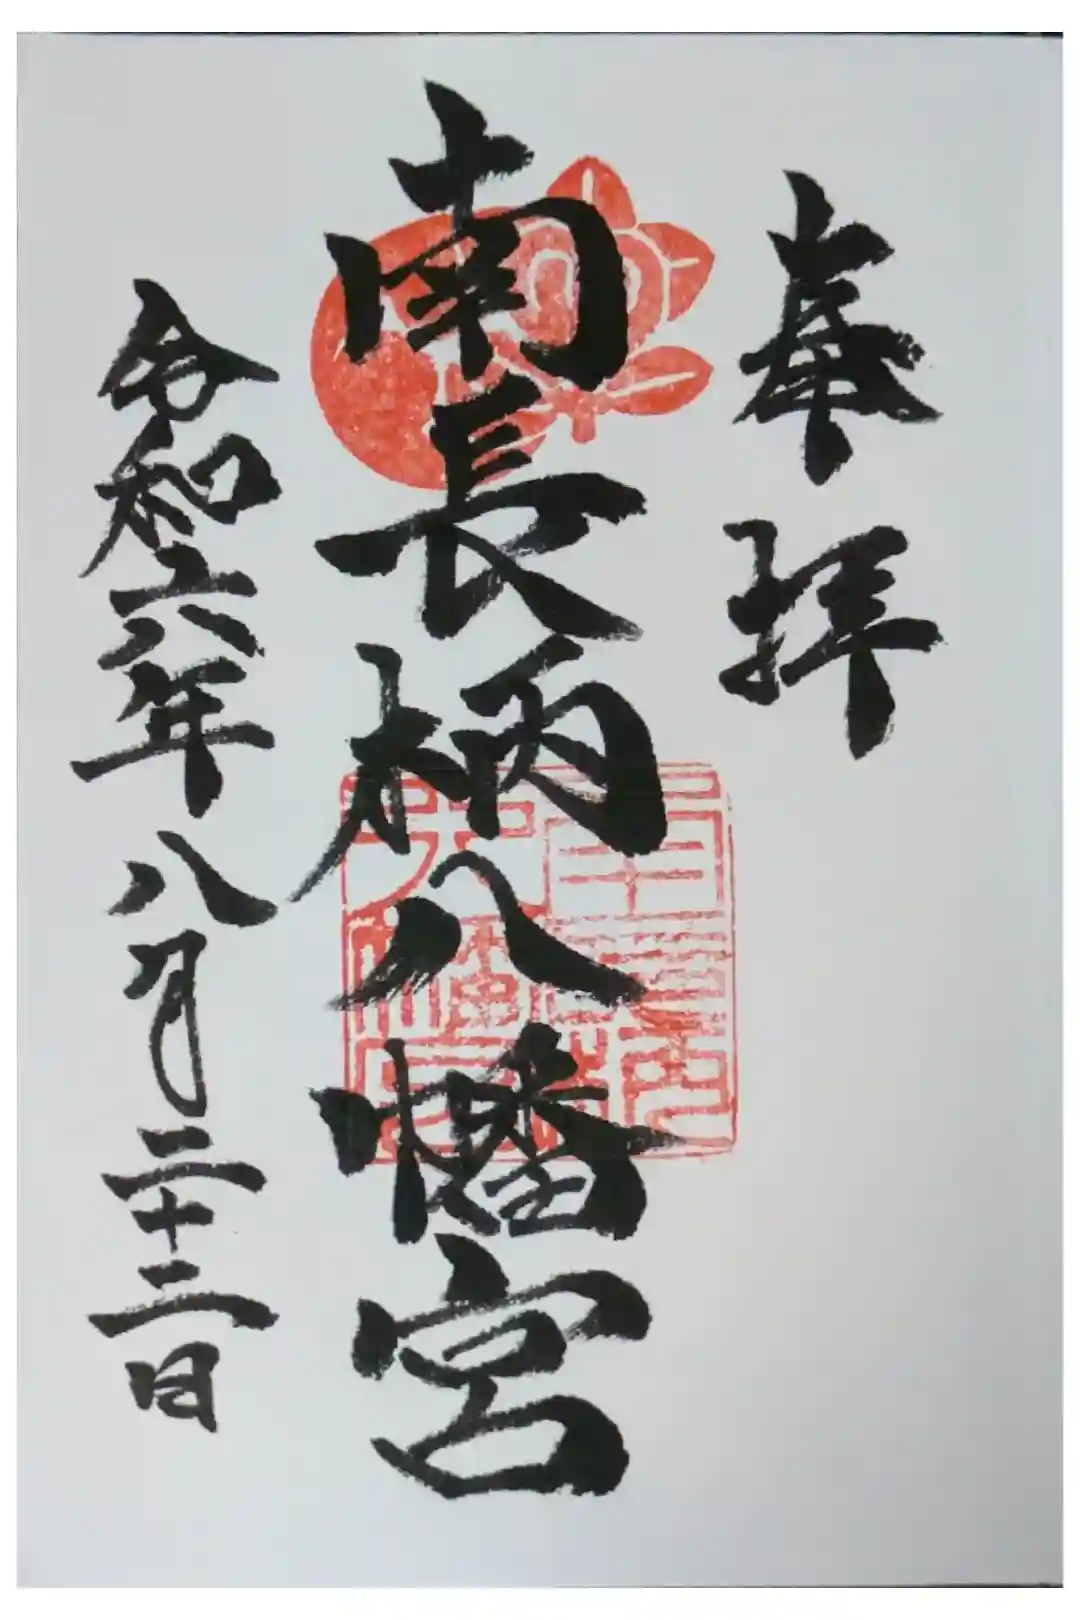 奉拝
南長柄八幡宮
令和六年八月二十二日